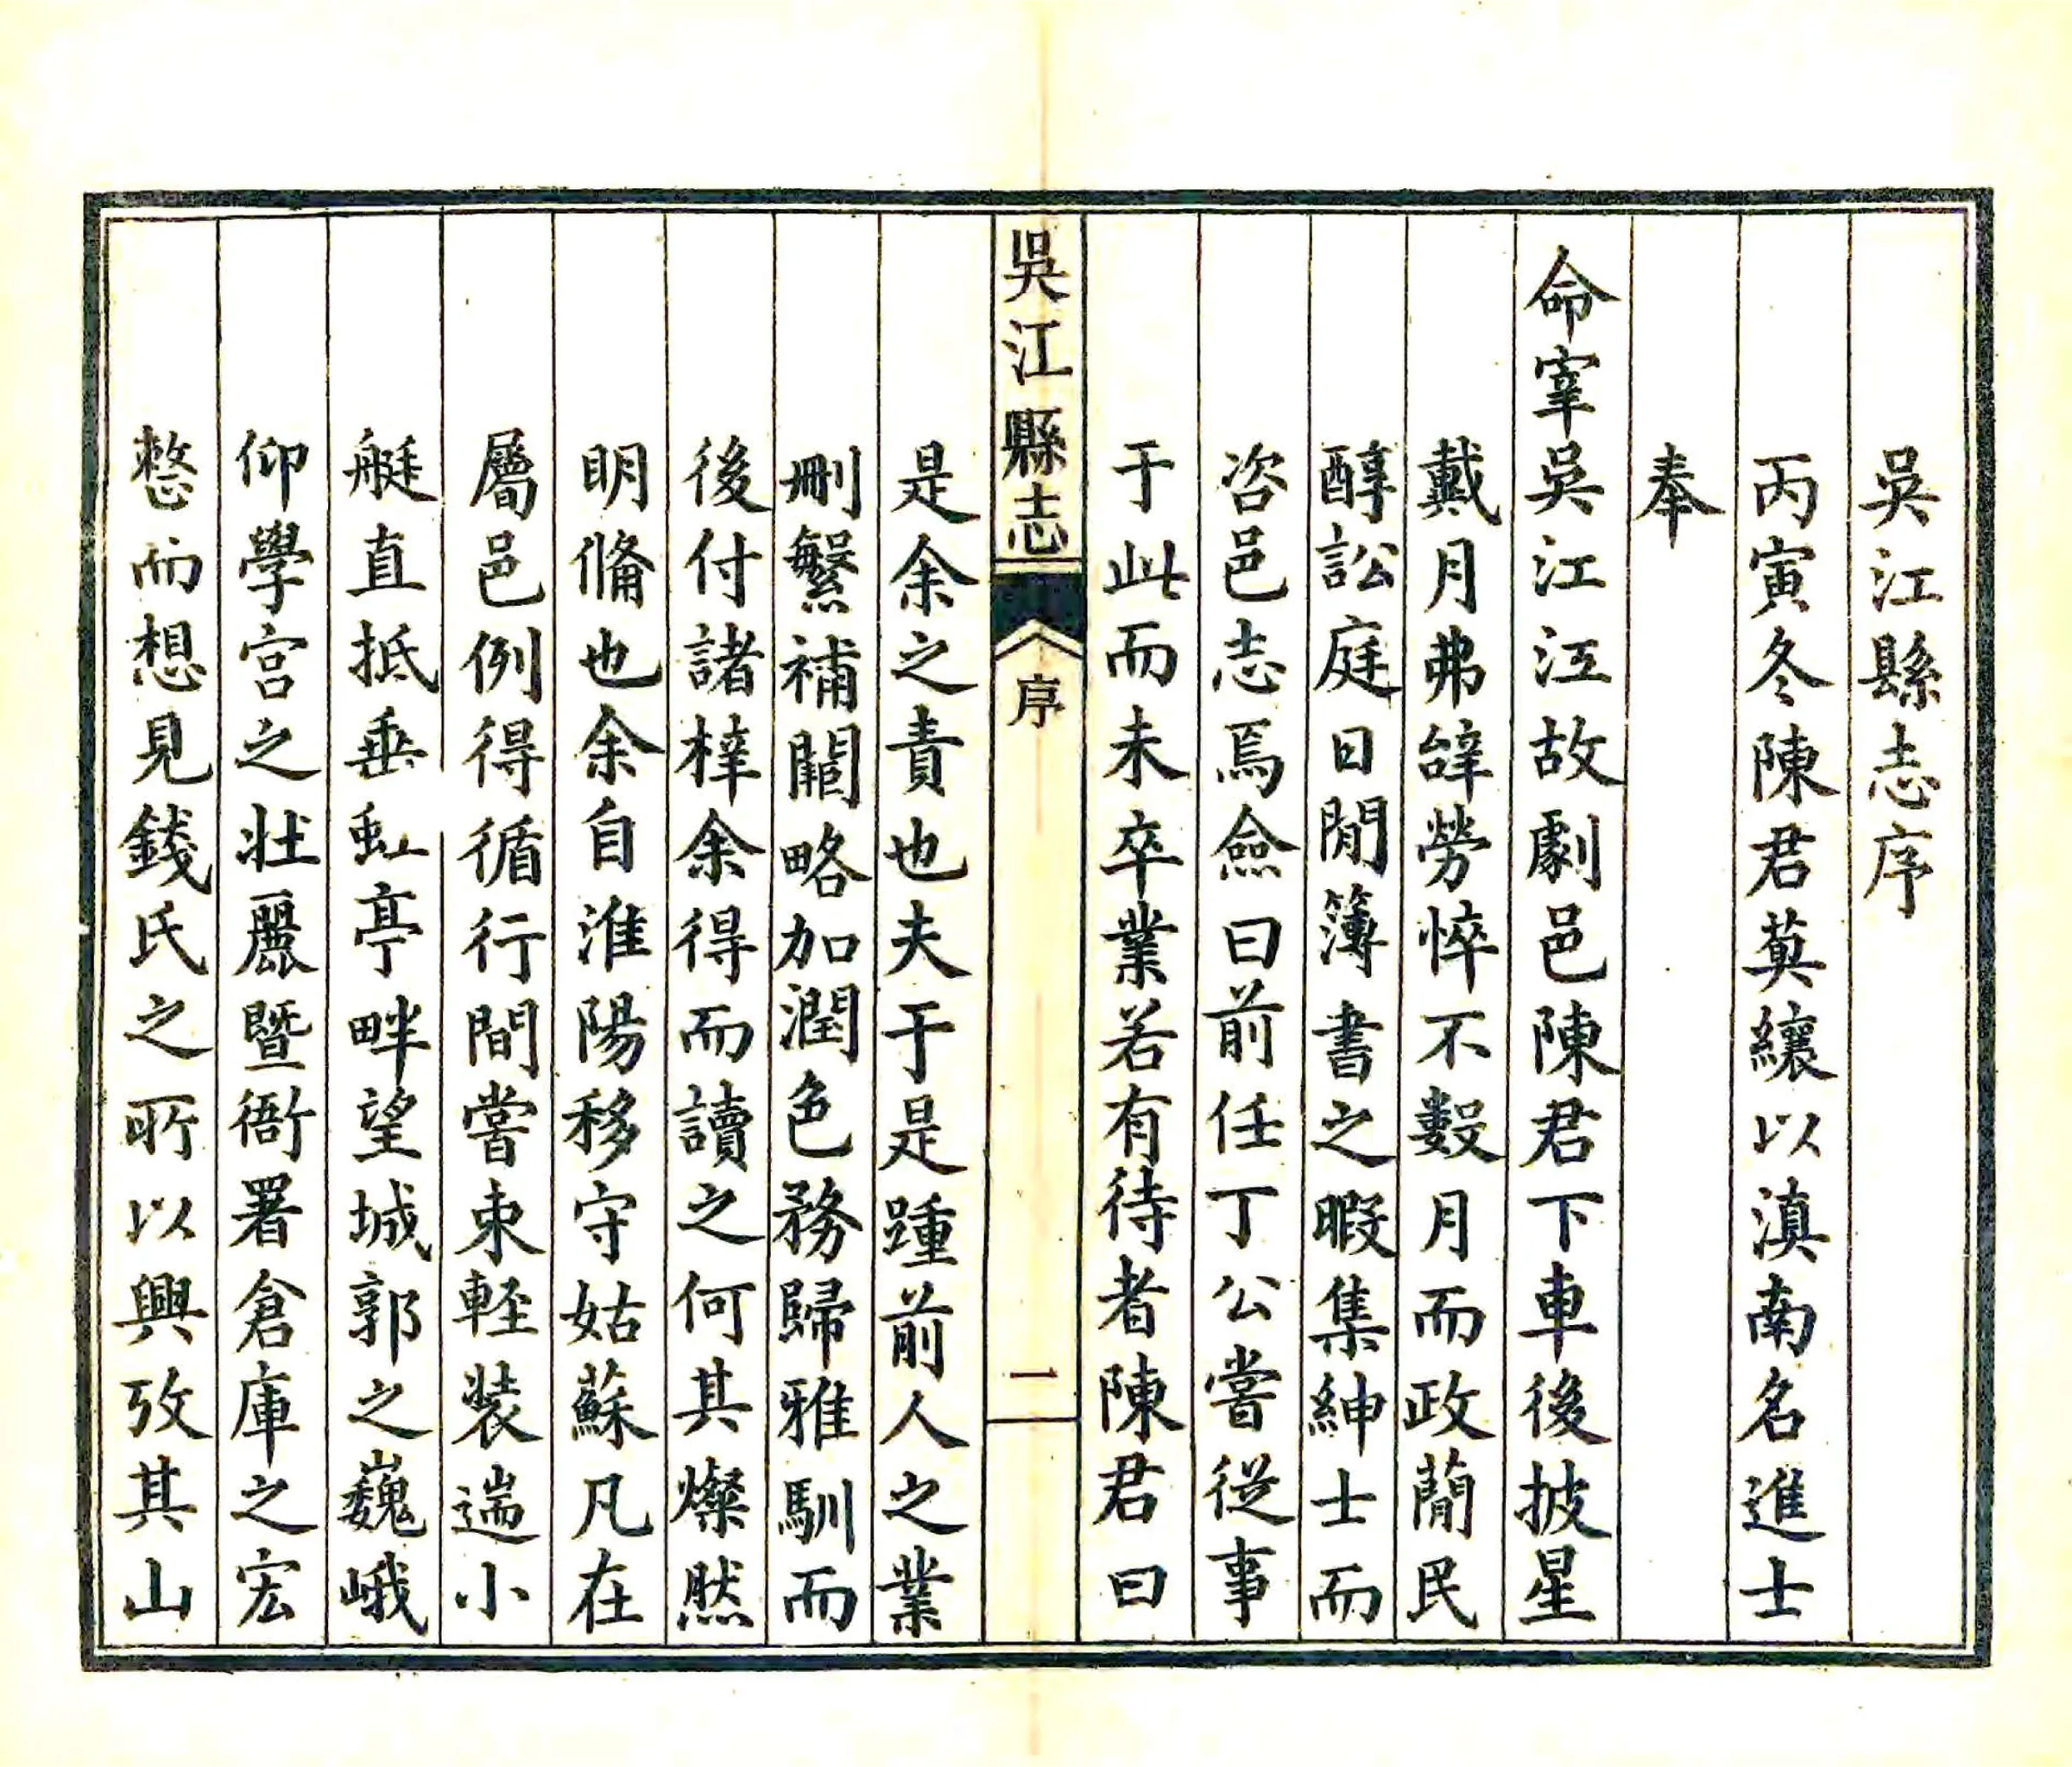 吳江縣志序
丙寅冬陳君蓂纕以滇南名進士
奉
命宰吳江江故劇邑陳君下車後披星
戴月弗辭勞悴不數月而政簡民
醇訟庭日閒簿書之暇集紳士而
咨邑志焉僉曰前任丁公嘗從事
于此而未卒業若有待者陳君曰
吳江縣志
序
一
是余之責也夫于是踵前人之業
刪繁補闕略加潤色務歸雅馴而
後付諸梓余得而讀之何其燦然
明俻也余自淮陽移守姑蘇凡在
屬邑例得循行間嘗束輕装遄小
艇直抵垂虹亭畔望城郭之巍峨
仰學宮之壯麗暨衙署倉庫之宏
整而想見錢氏之所以興攷其山